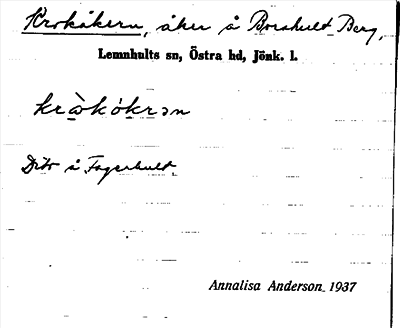 Krokåkern, åker å Boashult Berg,
Lemnhults sn, Östra hd, Jönk. l.
krẁkókrən
Dito å Fagerhult.
Annalisa Anderson 1937